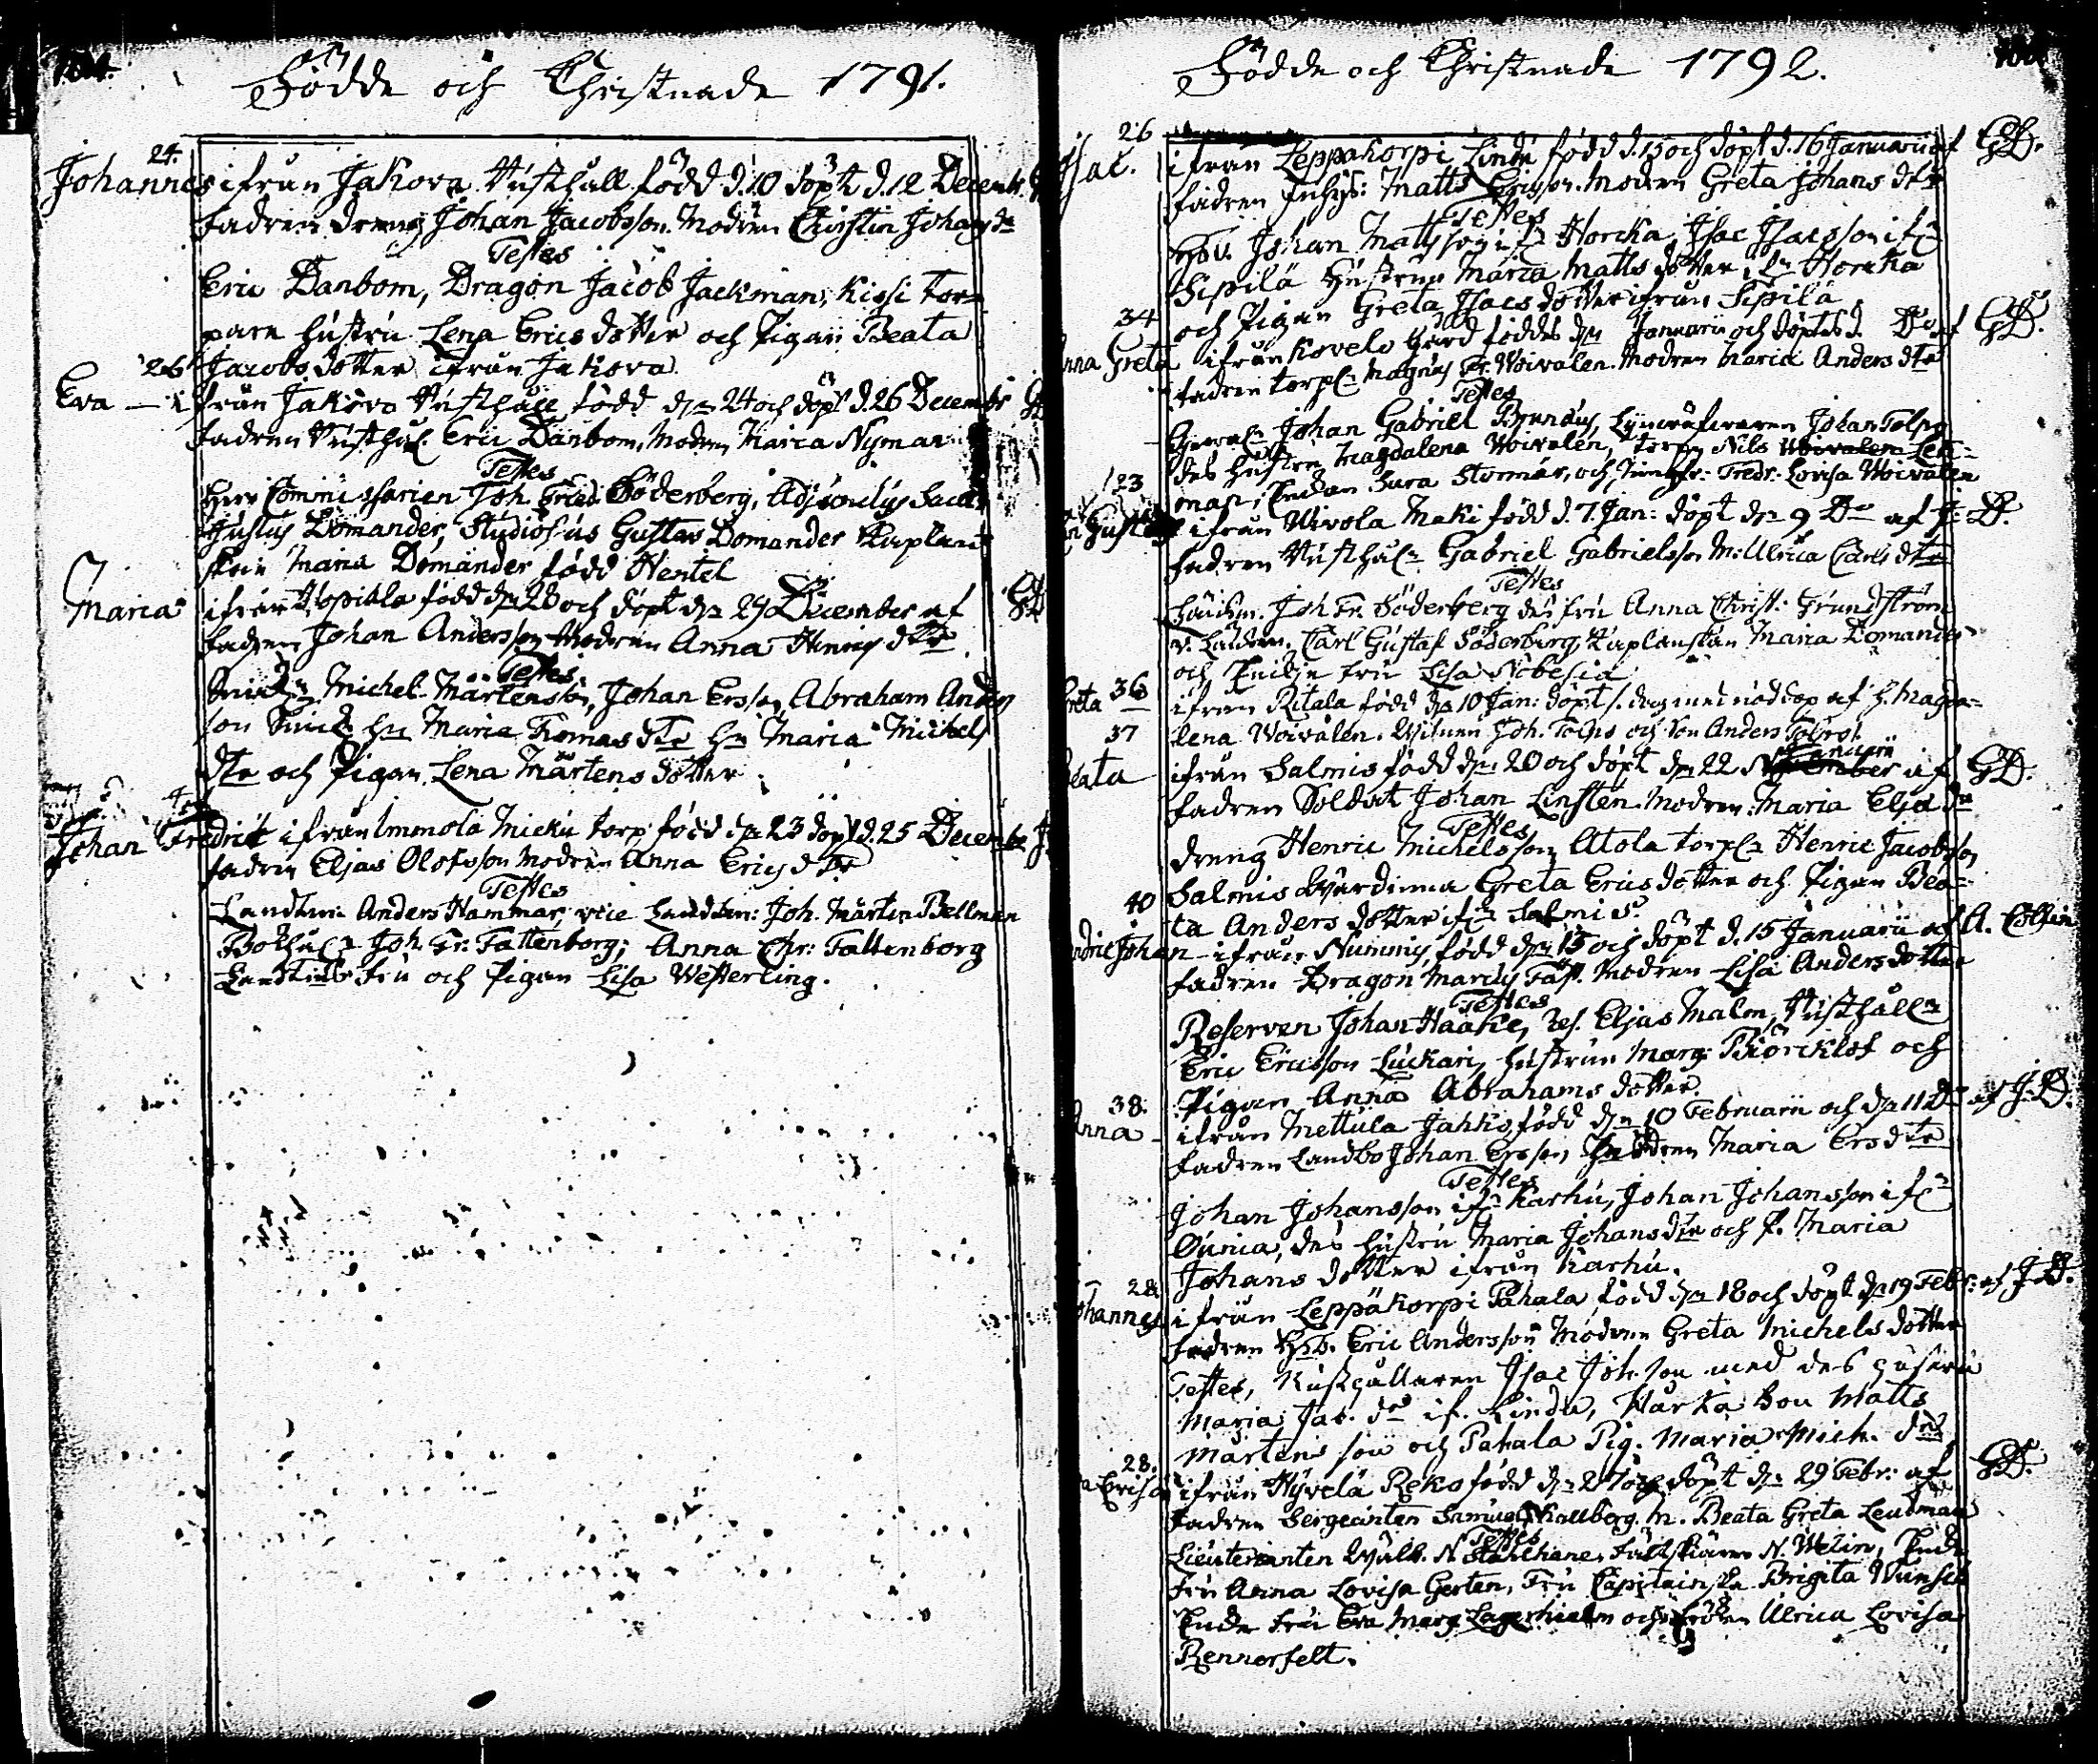 Födde och Christnade 1791.
24.
Johannes ifrån Jakova Rusthåll född d. 10 döpt d. 12 Decemb.
fadren dreng Johan Jacobsson. Modren Christin Johans dr
Testes
Eric Danbom, Dragon Jacob Jackman, Kissi tor=
pare hustru Lena Erics dotter och Pigan Beata
Jacobs dotter ifrån Jakova
26
Eva — ifrån Jakova Rusthåll född dn 24 och döpt d. 26 Decembr
fadren Rusthål. Eric Danbom, Modren Maria Nyman
Testes
Herr Commissarien Joh. Fried. Söderberg, Adjunctus Sacer
Justus Domander, Studiosus Gustav Domander Kaplans
skan Maria Domander född Hertel
Maria ifrån född dn 28 och döpt dn 29 December af
fadren Johan Andersson Modren Anna Henrics dtr
Testes
Michel Mårtensson, Johan Ersson, Abraham Anders
son Smeds hu Maria Tomas dtr hu Maria Michels
dtr och Pigan Lena Mårtens dotter
Johan Fredric ifrån Immola Micku torp född dn 23 döpt d. 25 Decemb.
fadren Eljas Olofsson Modren Anna Erics dtr
Testes
Landtm: Anders Hammar, vice Landtm: Joh. Mårten Bellman
Bokhål. Joh. Fr. Fattenborg; Anna Chr: Fattenborg
fru och Pigan Lisa Westerling.
Födde och Christnade 1792.
26
Isac. ifrån Leppäkorpi Lindu född d. 15 och döpt d. 16 Januarii af GD.
fadren Inhys: Matts Ericsson. Modren Greta Johans dtr
Testes
Hsb. Johan Mattsson ifn Horcka, Isac Isacsson ifn
Sipilä Hustrun Maria Matts dotter ifn Horcka
och Pigan Greta Isacs dotter ifrån Sipilä
34
Anna Greta ifrån Kovelo Gård föddes dn Januarii och döptes d. Do af GD.
fadren torp. Magnus Fr. Woivalen. Modren Maria Anders dtr
Testes
Johan Gabriel Brandus, Johan Tolpo
des hustru Magdalena Woivalen, torp. Nils Woivalen Lek=
man, Sara Stormår, och Jungfr. Fredr. Lovisa Woivalen
23
Gustaf ifrån Wivola Maki född d. 7. Jan: döpt dn 9 Do af J. D.
fadren Rusthål. Gabriel Gabrielsson M: Ulrica Carls dtr
Testes
Joh. Fr. Söderberg des fru Anna Christ. Grundström
v. Carl Gustaf Söderberg, Kaplanskan Maria Domander
och fru Lisa Nobesia
36
Greta ifrån Ritala född dn 10 Jan: döpt s. dag med nöddop af h. Magda=
lena Woivalen. Witnen Joh. Tolpo och Son Anders Tolpo.
37
Beata ifrån Salmis född dn 20 och döpt dn 22 Januarii af GD.
fadren Soldat Johan Linsten. Modren Maria Eljæ dr
Testes
dreng Henric Michelsson, Atola torp. Henric Jacobsson
Salmis Wärdinna Greta Erics dotter och Pigan Bea=
ta Anders dotter ifn Salmis.
40
Henric Johan ifrån Nummis, född dn 15 och döpt d. 15 Januarii af A. Collin
fadren Dragon Marcus Fast. Modren Lisa Anders dotter
Testes
Reserven Johan Haake, res. Eljas Malm, Rusthåll.
Eric Ericsson Luckari, hustrun Marg: Biörcklöf och
Pigan Anna Abrahams dotter
38.
Anna — ifrån Mettula Jahks, född dn 10 Februarii och dn 11 Do af J. D.
fadren Landbo Johan Ersson, Modren Maria Ers dtr
Testes
Johan Johansson ifn Karhu, Johan Johansson ifn
Ounia, des hustru Maria Johans dtr och P. Maria
Johans dotter ifrån Karhu.
28
Johannes ifrån Leppäkorpi Pahala född dn 18 och döpt dn 19 Febr: af J. D.
fadren Hsb. Eric Andersson Modren Greta Michels dotter
Testes, Rusthållaren Isac Joh. son med des hustru
Maria Jac. dr if. Lindu, Hurka Son Matts
Mårtens son och Pahala Pig. Maria Mich. dr
28.
ifrån Hyvelä Reko född dn 27 och döpt dn 29 Febr: af GD.
fadren Sergeanten Samuel Kallberg. M. Beata Greta Leutman
Testes
Lieutenanten Wälb. N. Stahlhane, fältskären N. Welin,
fru Anna Lovisa Gerten, Fru Capitainska Brigita Wunsch
fru Eva Marg. Lagerhielm och fröken Ulrica Lovisa
Rennerfelt.